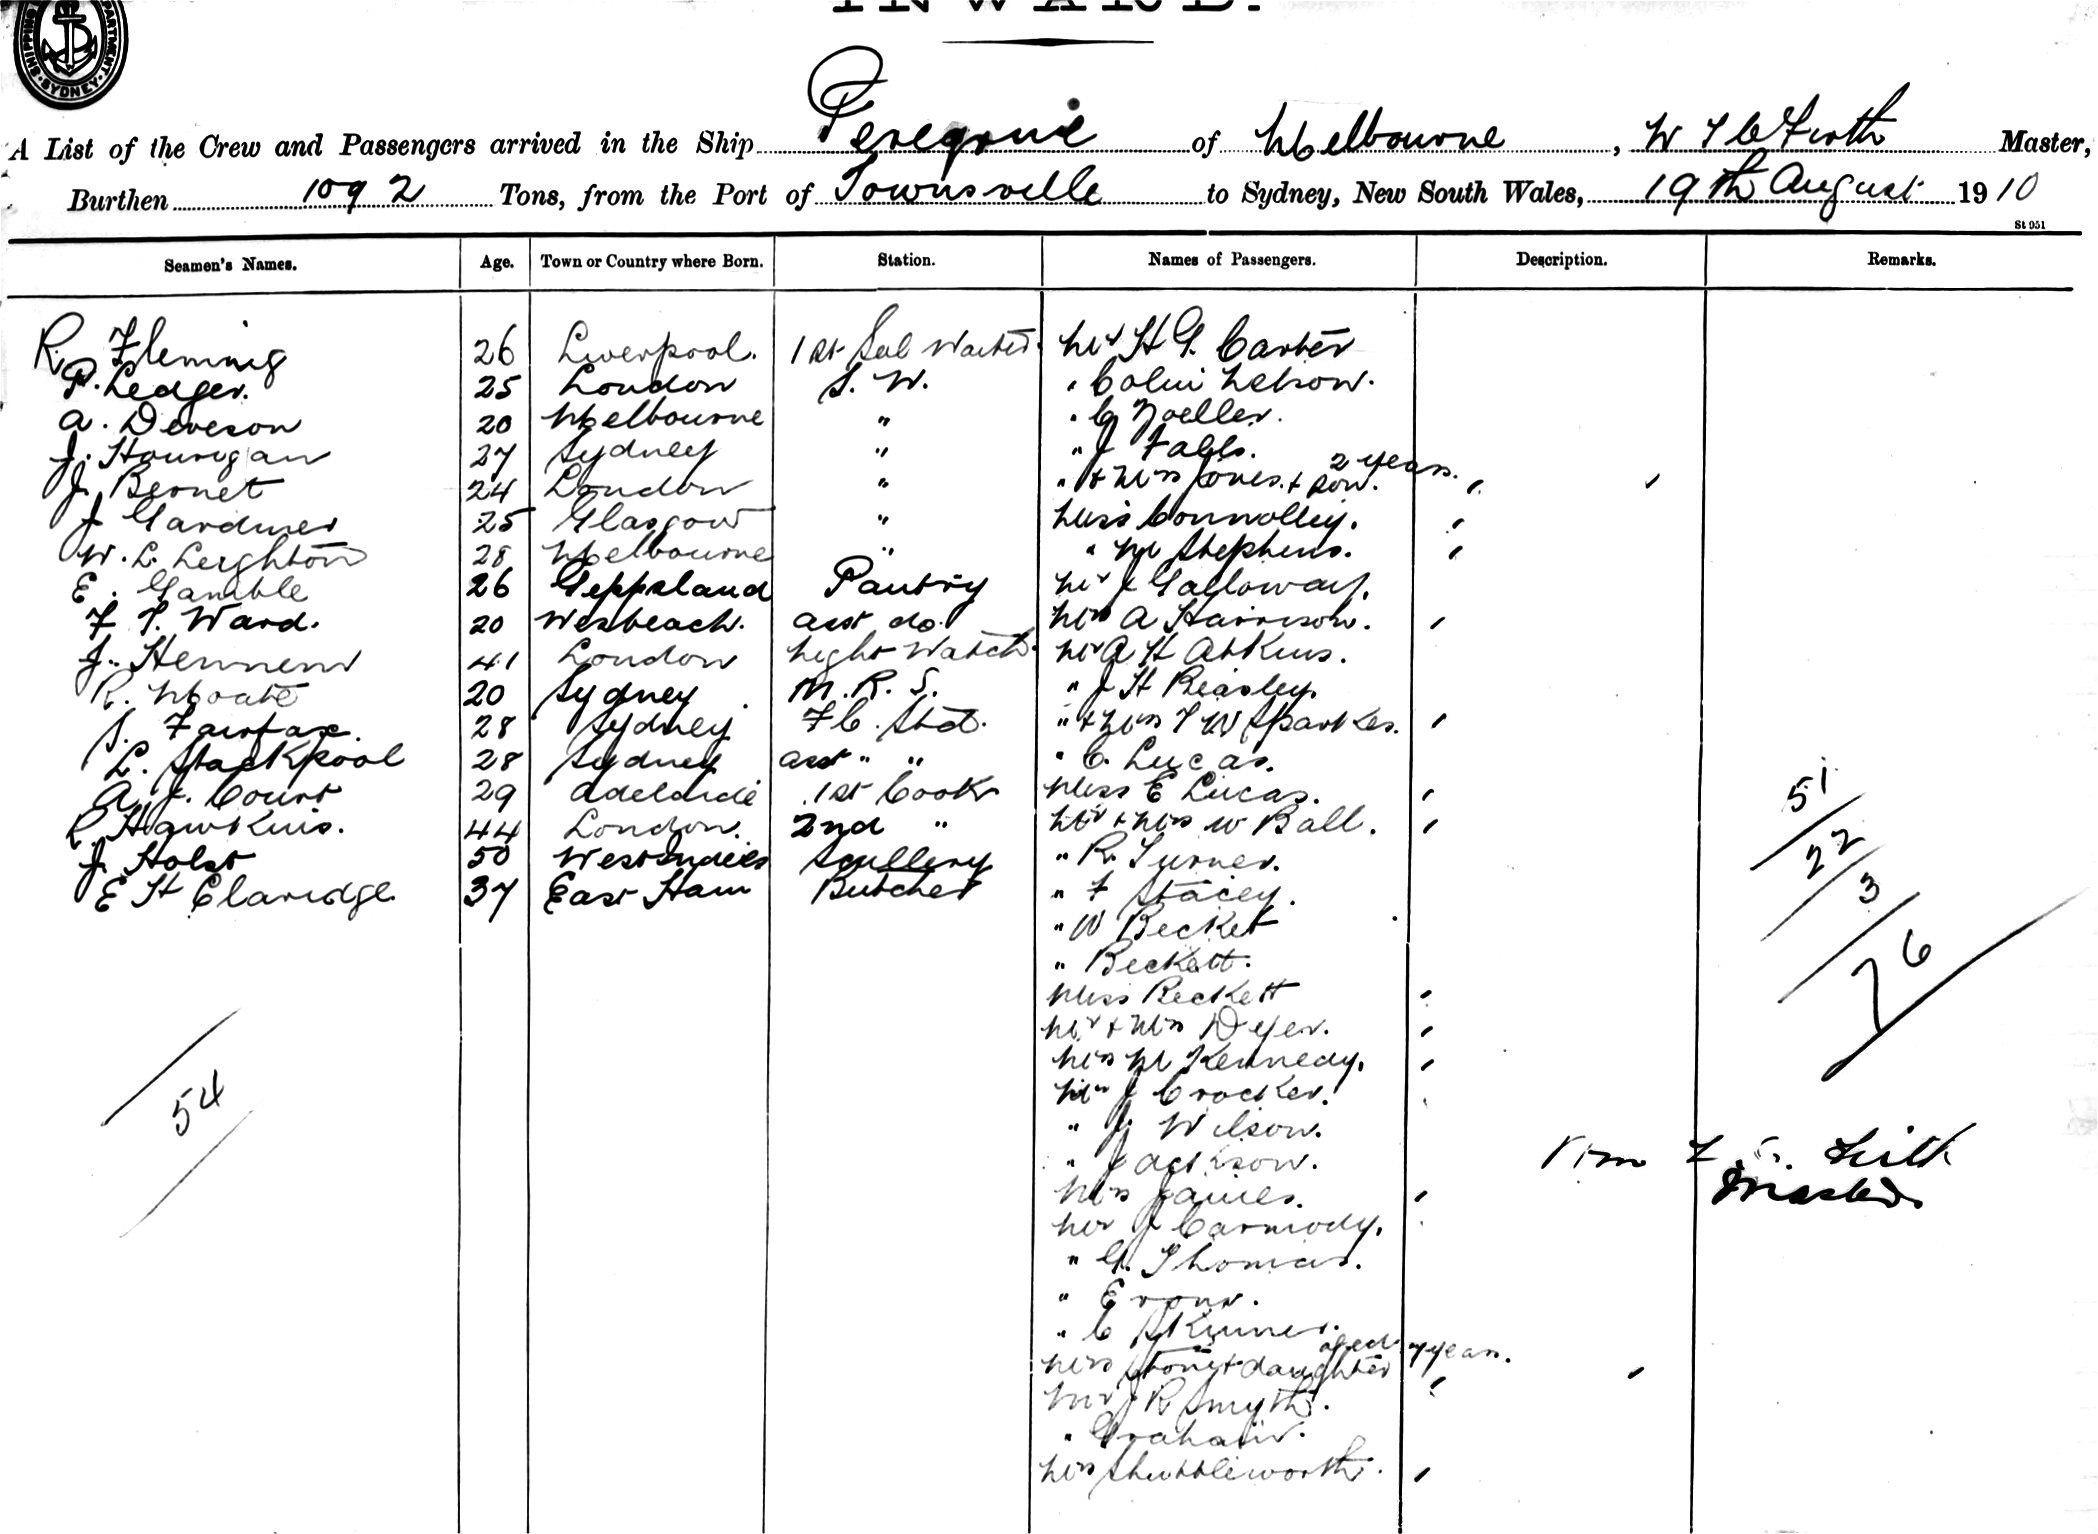 INWARD.
SHIPPING DEPARTMENT SYDNEY
A List of the Crew and Passengers arrived in the Ship Peregrine of Melbourne, Master,
Burthen 1092 Tons, from the Port of Townsville to Sydney, New South Wales, 19th August 1910
St 951
Seamen's Names. Age. Town or Country where Born. Station. Names of Passengers. Description. Remarks.
R. Fleming 26 Liverpool. 1st Sal Waiter. Mr H G. Carter
P. Ledger. 25 London S. W. " Colin Nelson.
A. Deveson 20 Melbourne " " C Zoeller.
J. Hourigan 27 Sydney " " J Falls.
2 years.
J. Bernet 24 London " " & Mrs Jones. & son.
J Gardiner 25 Glasgow " Miss Connolley.
W. L. Leighton 28 Melbourne " " M Stephens.
E. Gamble 26 Geppsland Pantry Mr J Galloway.
F T. Ward. 20 Wesbeach. asst do. Mrs A Harrison.
J. Hennem 41 London Night Watch. Mr A H Atkins.
R. Moate 20 Sydney M. R. S. " J H Beasley.
S. Fairfax. 28 Sydney F C. Std. " & Mrs T W Sparkes.
L. Stackpool 28 Sydney asst " " " C. Lucas.
A. J. Court 29 Adelaide 1st Cook Miss E Lucas.
51
R. Hawkins. 44 London. 2nd " Mr & Mrs W Ball.
22
J. Holst 50 West Indies Scullery " R. Turner.
3
E H Claridge 37 East Ham Butcher " F Stacey.
" W Becket
76
" Beckett.
Miss Beckett
Mr & Mrs Dyer.
Mrs M Kennedy.
54
Mr J Crocker.
" J. Wilson.
" Jackson.
Master
Mrs James.
Mr J Carmody.
" G. Thomas.
" C Skinner.
aged 7 years.
Mrs Stone & daughter
Mr J R Smyth.
" Graham.
Mrs Shuttleworth.